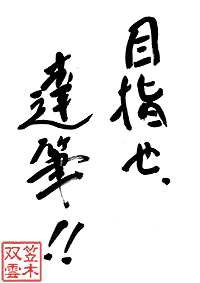 目指せ、
達筆!!
笠木
双雲